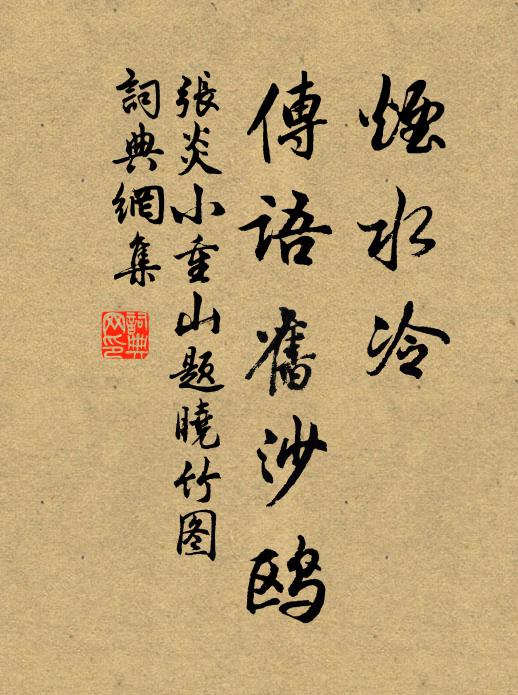 煙水冷
傳語舊沙鷗
張炎小重山題曉竹图
詞典網集
詞典
网印